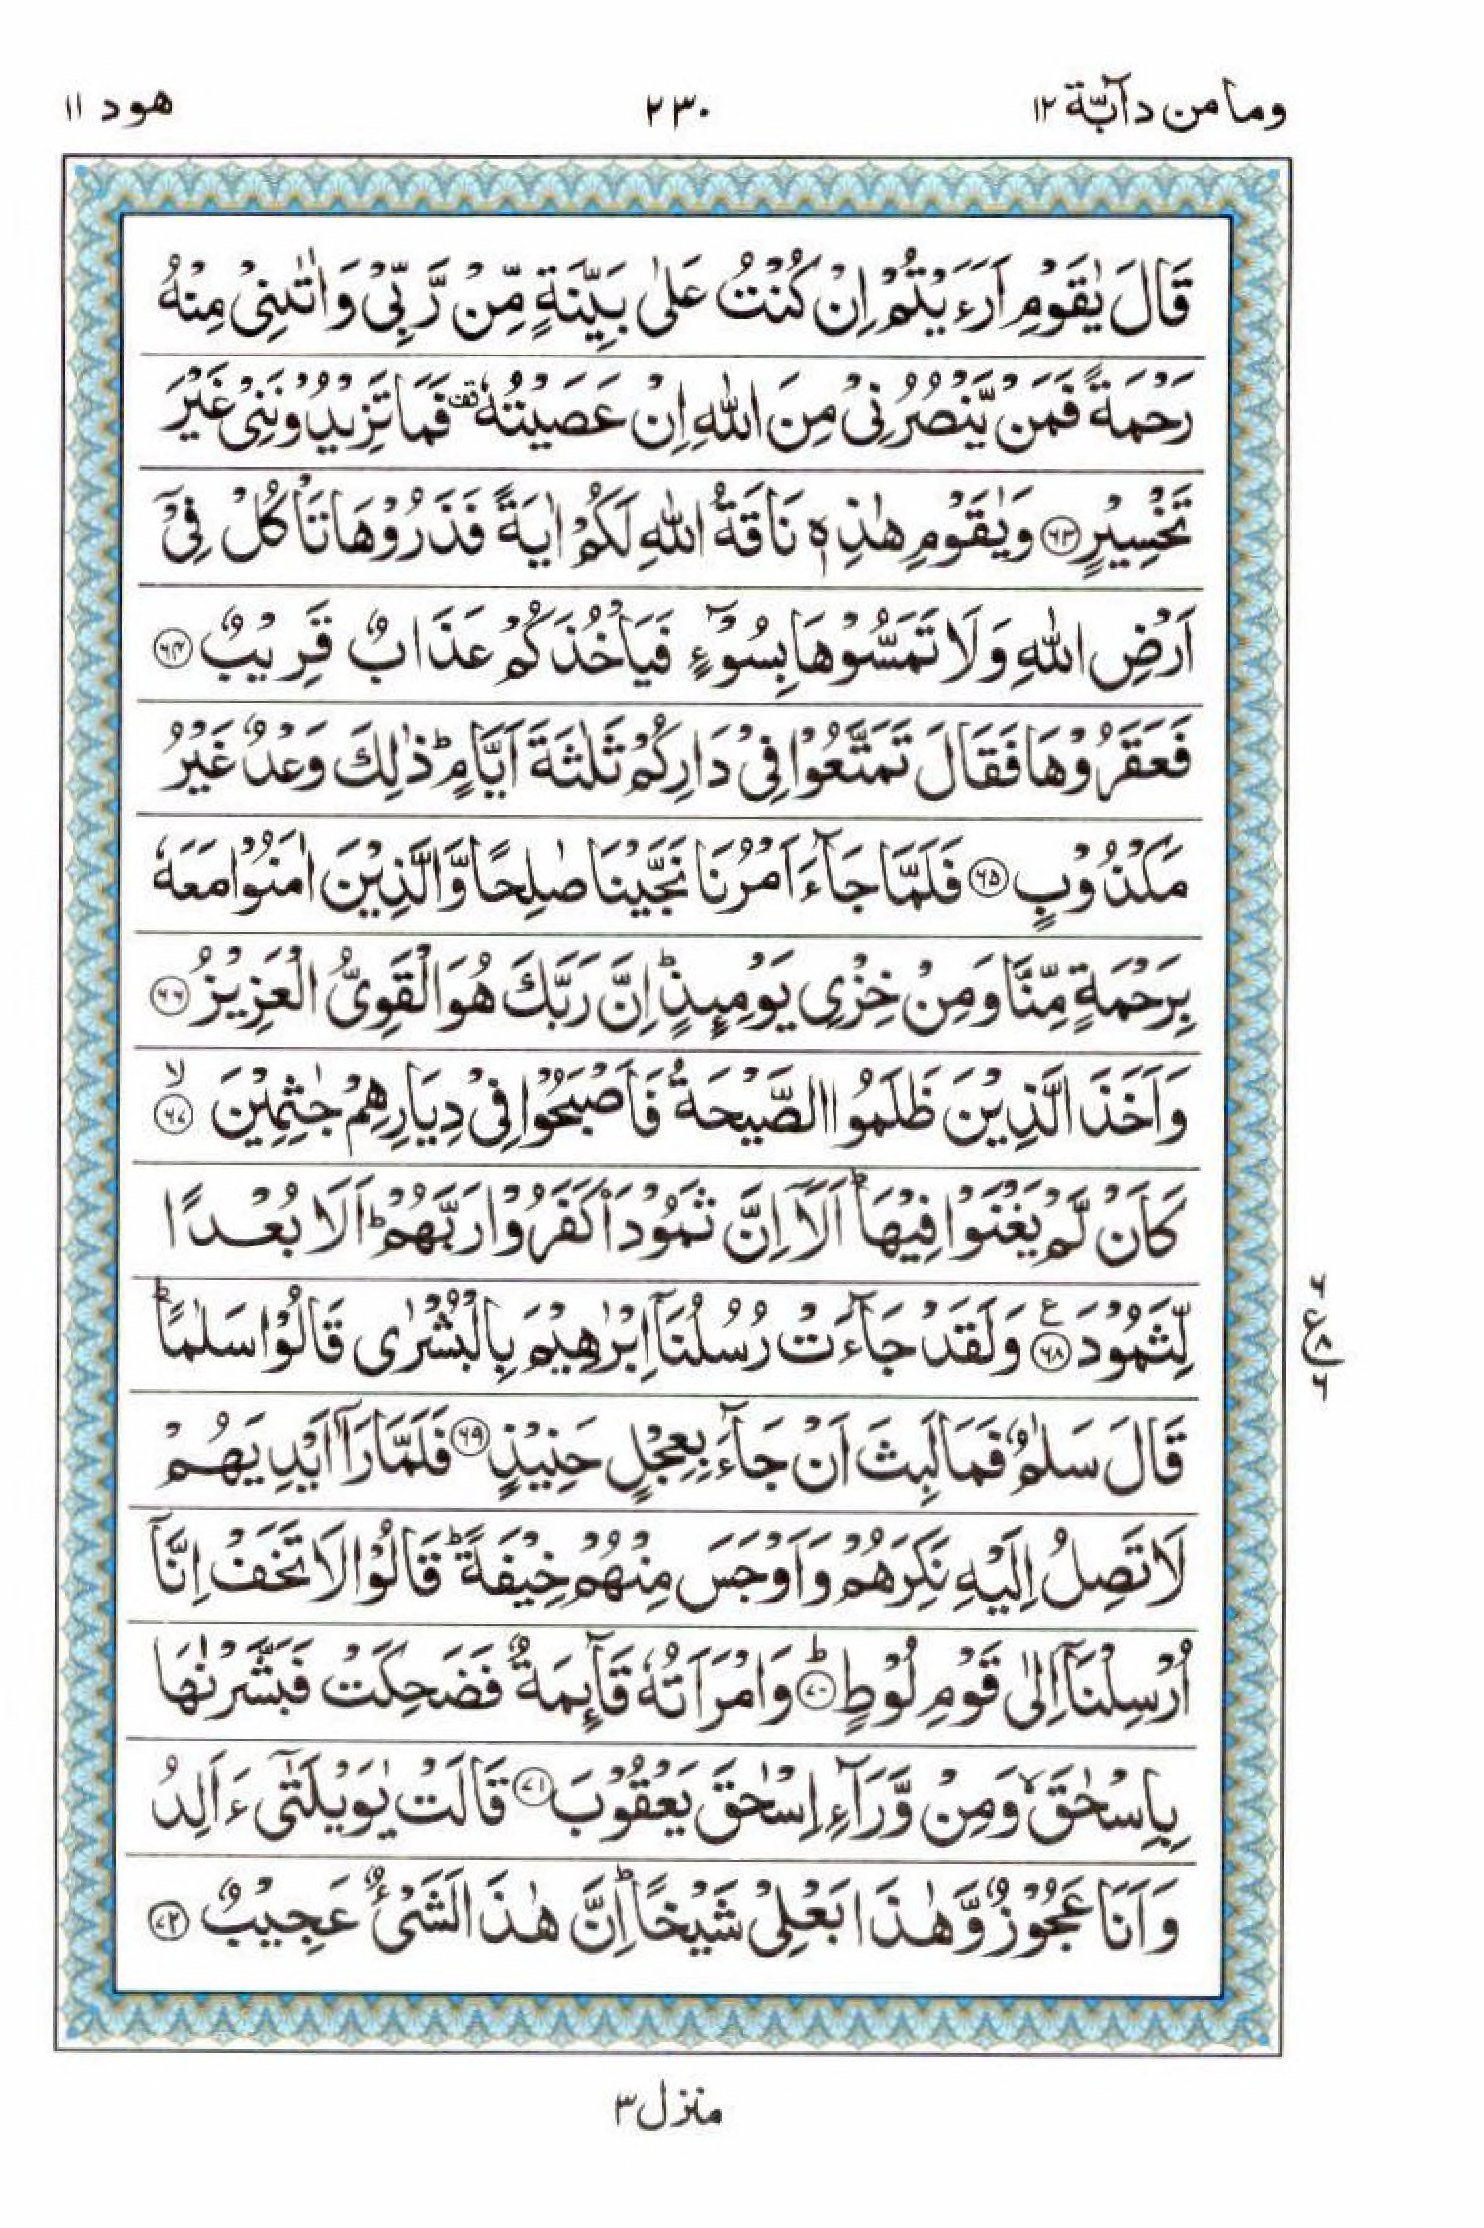 وما من دآبّة ١٢
٢٣٠
هود ١١
قَالَ يٰقَوْمِ اَرَءَيْتُمْ اِنْ كُنْتُ عَلٰى بَيِّنَةٍ مِّنْ رَّبِّيْ وَاٰتٰىنِيْ مِنْهُ
رَحْمَةً فَمَنْ يَّنْصُرُنِيْ مِنَ اللّٰهِ اِنْ عَصَيْتُهٗ ۫ فَمَا تَزِيْدُوْنَنِيْ غَيْرَ
تَخْسِيْرٍ ﴿٦٣﴾ وَيٰقَوْمِ هٰذِهٖ نَاقَةُ اللّٰهِ لَكُمْ اٰيَةً فَذَرُوْهَا تَاْكُلْ فِيْۤ
اَرْضِ اللّٰهِ وَلَا تَمَسُّوْهَا بِسُوْٓءٍ فَيَاْخُذَكُمْ عَذَابٌ قَرِيْبٌ ﴿٦٤﴾
فَعَقَرُوْهَا فَقَالَ تَمَتَّعُوْا فِيْ دَارِكُمْ ثَلٰثَةَ اَيَّامٍ ؕ ذٰلِكَ وَعْدٌ غَيْرُ
مَكْذُوْبٍ ﴿٦٥﴾ فَلَمَّا جَآءَ اَمْرُنَا نَجَّيْنَا صٰلِحًا وَّالَّذِيْنَ اٰمَنُوْا مَعَهٗ
بِرَحْمَةٍ مِّنَّا وَمِنْ خِزْيِ يَوْمِئِذٍ ؕ اِنَّ رَبَّكَ هُوَ الْقَوِيُّ الْعَزِيْزُ ﴿٦٦﴾
وَاَخَذَ الَّذِيْنَ ظَلَمُوا الصَّيْحَةُ فَاَصْبَحُوْا فِيْ دِيَارِهِمْ جٰثِمِيْنَ ۙ﴿٦٧﴾
كَاَنْ لَّمْ يَغْنَوْا فِيْهَا ؕ اَلَاۤ اِنَّ ثَمُوْدَا۟ كَفَرُوْا رَبَّهُمْ ؕ اَلَا بُعْدًا
لِّثَمُوْدَ ﴿٦٨﴾ ع وَلَقَدْ جَآءَتْ رُسُلُنَاۤ اِبْرٰهِيْمَ بِالْبُشْرٰى قَالُوْا سَلٰمًا ؕ
قَالَ سَلٰمٌ فَمَا لَبِثَ اَنْ جَآءَ بِعِجْلٍ حَنِيْذٍ ﴿٦٩﴾ فَلَمَّا رَاٰۤ اَيْدِيَهُمْ
لَا تَصِلُ اِلَيْهِ نَكِرَهُمْ وَاَوْجَسَ مِنْهُمْ خِيْفَةً ؕ قَالُوْا لَا تَخَفْ اِنَّاۤ
اُرْسِلْنَاۤ اِلٰى قَوْمِ لُوْطٍ ؕ﴿٧٠﴾ وَامْرَاَتُهٗ قَآئِمَةٌ فَضَحِكَتْ فَبَشَّرْنٰهَا
بِاِسْحٰقَ ۙ وَمِنْ وَّرَآءِ اِسْحٰقَ يَعْقُوْبَ ﴿٧١﴾ قَالَتْ يٰوَيْلَتٰۤى ءَاَلِدُ
وَاَنَا عَجُوْزٌ وَّهٰذَا بَعْلِيْ شَيْخًا ؕ اِنَّ هٰذَا لَشَيْءٌ عَجِيْبٌ ﴿٧٢﴾
منزل ٣